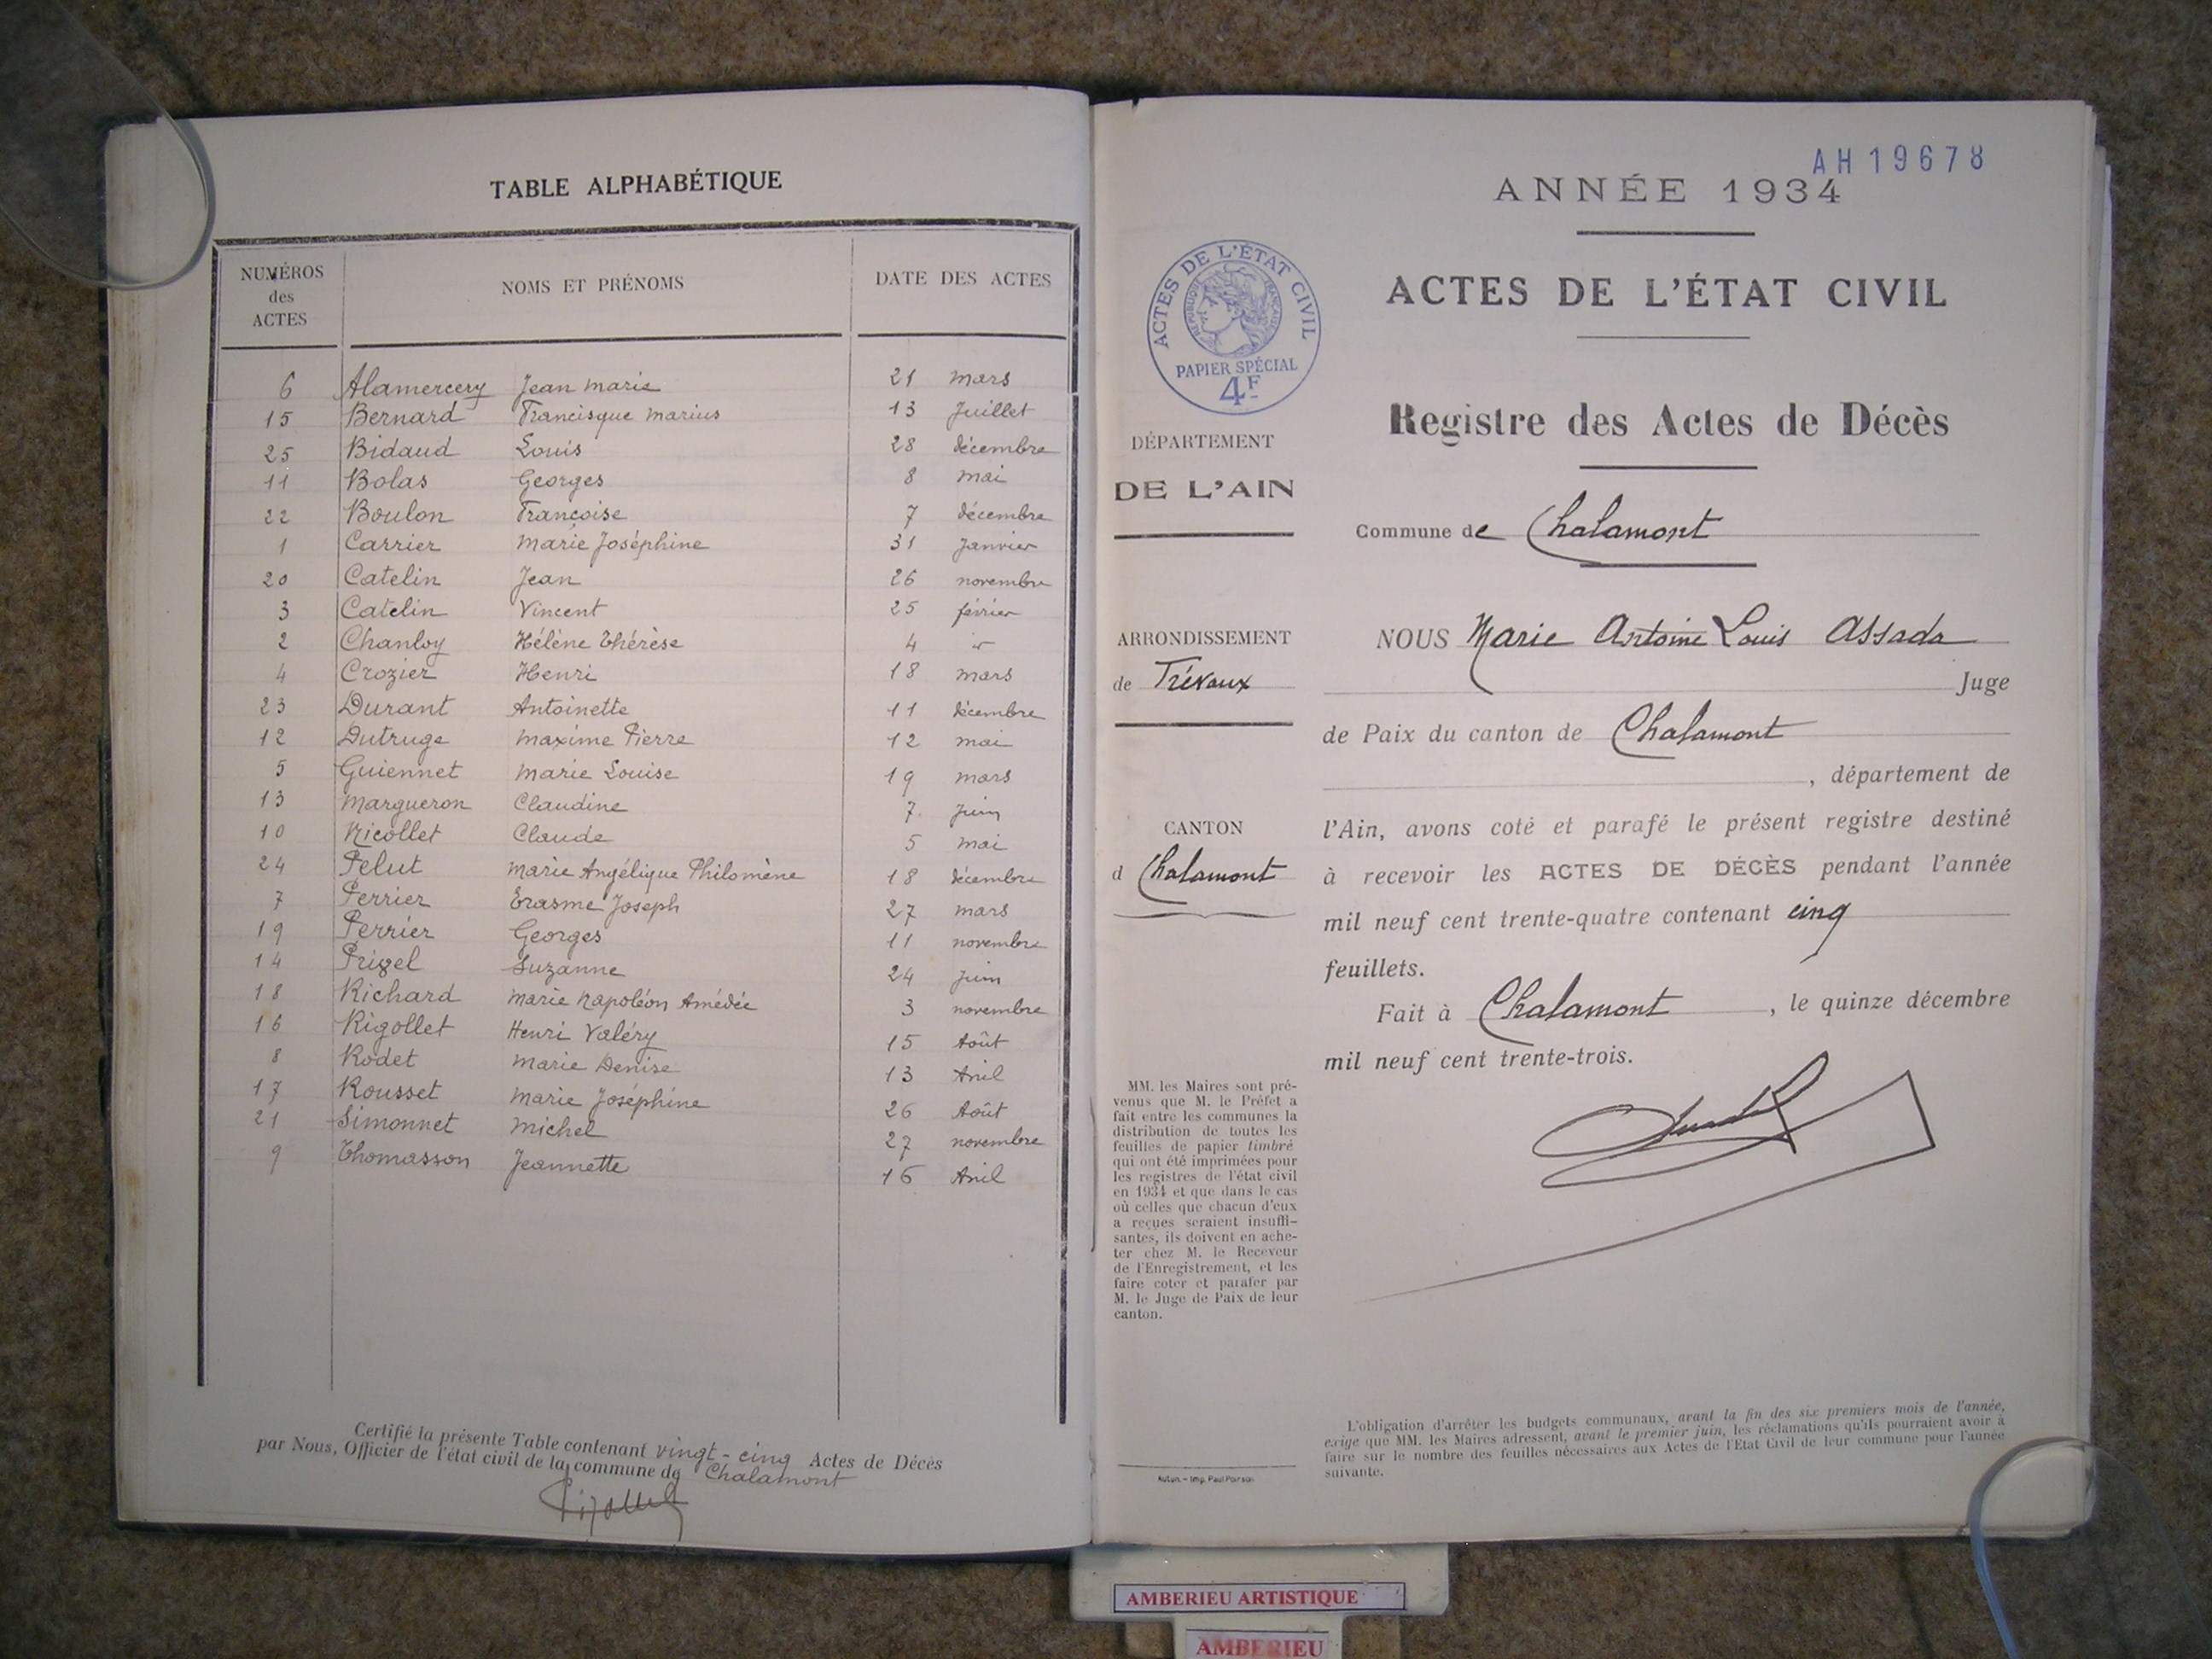 TABLE ALPHABÉTIQUE
NUMÉROS des ACTES NOMS ET PRÉNOMS DATE DES ACTES
6 Alamercery Jean marie 21 mars
15 Bernard Francisque marius 13 Juillet
25 Bidaud Louis 28 décembre
11 Bolas Georges 8 mai
22 Boulon Françoise 7 décembre
1 Carrier Marie Joséphine 31 Janvier
20 Catelin Jean 26 novembre
3 Catelin Vincent 25 février
2 Chanloy Hélène Thérèse 4
4 Crozier Henri 18 mars
23 Durant Antoinette 11 décembre
12 Dutruge Maxime Pierre 12 mai
5 Guiennet Marie Louise 19 mars
13 Margueron Claudine 7 Juin
10 Nicollet Claude 5 mai
24 Pelut Marie Angélique Philomène 18 décembre
7 Perrier Erasme Joseph 27 mars
19 Perrier Georges 11 novembre
14 Suzanne 24 Juin
18 Richard Marie Napoléon Amédée 3 novembre
16 Rigollet Henri Valéry 15 Août
8 Rodet Marie Denise 13 Avril
17 Rousset Marie Joséphine 26 Août
21 Simonnet Michel 27 novembre
9 Thomasson Jeannette 16 Avril
Certifié la présente Table contenant vingt-cinq Actes de Décès
par Nous, Officier de l'état civil de la commune de Chalamont
AH19678
ANNÉE 1934
ACTES DE L'ÉTAT CIVIL
Registre des Actes de Décès
Commune de Chalamont
NOUS Marie Antoine Louis Assada
Juge
de Paix du canton de Chalamont
, département de
l'Ain, avons coté et parafé le présent registre destiné
à recevoir les ACTES DE DÉCÈS pendant l'année
mil neuf cent trente-quatre contenant cinq
feuillets.
Fait à Chalamont, le quinze décembre
mil neuf cent trente-trois.
ACTES DE L'ÉTAT CIVIL
RÉPUBLIQUE FRANÇAISE
PAPIER SPÉCIAL
4F
DÉPARTEMENT
DE L'AIN
ARRONDISSEMENT
de Trévoux
CANTON
d Chalamont
MM. les Maires sont pré-
venus que M. le Préfet a
fait entre les communes la
distribution de toutes les
feuilles de papier timbré
qui ont été imprimées pour
les registres de l'état civil
en 1934 et que dans le cas
où celles que chacun d'eux
a reçues seraient insuffi-
santes, ils doivent en ache-
ter chez M. le Receveur
de l'Enregistrement, et les
faire coter et parafer par
M. le Juge de Paix de leur
canton.
Autun. - Imp. Paul Poirson
L'obligation d'arrêter les budgets communaux, avant la fin des six premiers mois de l'année,
exige que MM. les Maires adressent, avant le premier juin, les réclamations qu'ils pourraient avoir à
faire sur le nombre des feuilles nécessaires aux Actes de l'État Civil de leur commune pour l'année
suivante.
AMBERIEU ARTISTIQUE
AMBERIEU